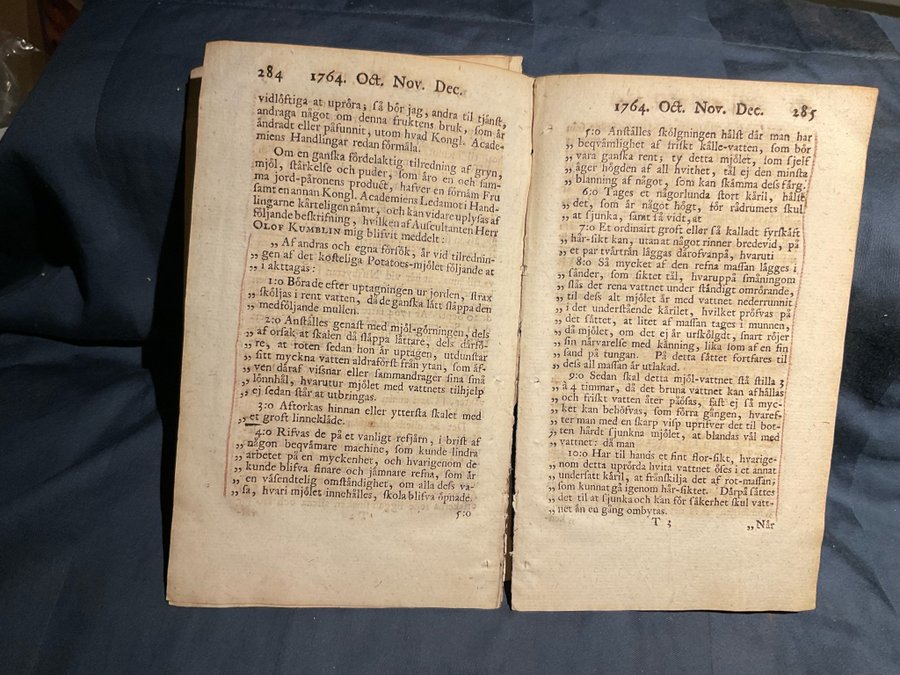 284 1764. Oct. Nov. Dec.
vidlöftiga at upröra; så bör jag, andra til tjänst,
andraga något om denna fruktens bruk, som är
ändradt eller påfunnit, utom hvad Kongl. Acade-
miens Handlingar redan förmäla.
Om en ganska fördelaktig tilredning af gryn,
mjöl, stärkelse och puder, som äro en och sam-
ma jord-päronens product, hafver en förnäm Fru
samt en annan Kongl. Academiens Ledamot i Hand-
lingarne kårteligen nämt, och kan vidare uplysas af
följande beskrifning, hvilken af Auscultanten Herr
OLOF KUMBLIN mig blifvit meddelt:
„ Af andras och egna försök, är vid tilrednin-
„ gen af det kosteliga Potatoes-mjölet följande at
„ i akttagas:
1:0 Böra de efter uptagningen ur jorden, strax
„ sköljas i rent vatten, då de ganska lätt släppa den
„ medföljande mullen.
2:0 Anställes genast med mjöl-görningen, dels
„ af orsak at skalen då släppa lättare, dels därfö-
„ re, at roten sedan hon är uptagen, utdunstar
„ sitt myckna vatten aldraförst från ytan, som äf-
„ ven däraf visnar eller sammandrager sina små
„ lönnhål, hvarutur mjölet med vattnets tilhjelp
„ ej sedan står at utbringas.
3:0 Aftorkas hinnan eller yttersta skalet med
„ et groft linneklåde.
4:0 Rifvas de på et vanligt refjärn, i brist af
„ någon beqvämare machine, som kunde lindra
„ arbetet på en myckenhet, och hvarigenom de
„ kunde blifva finare och jämnare refna, som är
„ en väsendtelig omständighet, om alla dess va-
„ sa, hvari mjölet innehålles, skola blifva öpnade.
5:0
1764. Oct. Nov. Dec. 285
5:0 Anställes skölgningen hälst där man har
„ beqvämlighet af friskt källe-vatten, som bör
„ vara ganska rent; ty detta mjölet, som sjelf
„ äger högden af all hvithet, tål ej den minsta
„ blanning af något, som kan skämma dess färg.
6:0 Tages et någorlunda stort käril, hälst
„ det, som är något högt, för rådrumets skul
„ at sjunka, samt så vidt, at
7:0 Et ordinairt groft eller så kalladt fyrskäft
„ hår-sikt kan, utan at något rinner bredevid, på
„ et par tvärträn läggas därofvanpå, hvaruti
8:0 Så mycket af den refna massan lägges i
„ sänder, som siktet tål, hvaruppå småningom
„ slås det rena vattnet under ständigt omrörande,
„ til dess alt mjölet är med vattnet nederrunnit
„ i det understående kärilet, hvilket pröfvas på
„ det sättet, at litet af massan tages i munnen,
„ då mjölet, om det ej är urskölgdt, snart röjer
„ sin närvarelse med känning, lika som af en fin
„ sand på tungan. På detta sättet fortfares til
„ dess all massan är utlakad.
9:0 Sedan skal detta mjöl-vattnet stå stilla 3
„ à 4 timmar, då det bruna vattnet kan afhällas
„ och friskt vatten åter påösas, fast ej så myc-
„ ket kan behöfvas, som förra gången, hvaref-
„ ter man med en skarp visp uprifver det til bot-
„ ten hårdt sjunkna mjölet, at blandas väl med
„ vattnet: då man
10:0 Har til hands et fint flor-sikt, hvarige-
„ nom detta uprörda hvita vattnet öses i et annat
„ undersatt käril, at frånskilja det af rot-massan,
„ som kunnat gå igenom hår-siktet. Därpå sättes
„ det til at sjunka och kan för säkerhet skul vatt-
„ net än en gång ombytas.
T 3 „ När